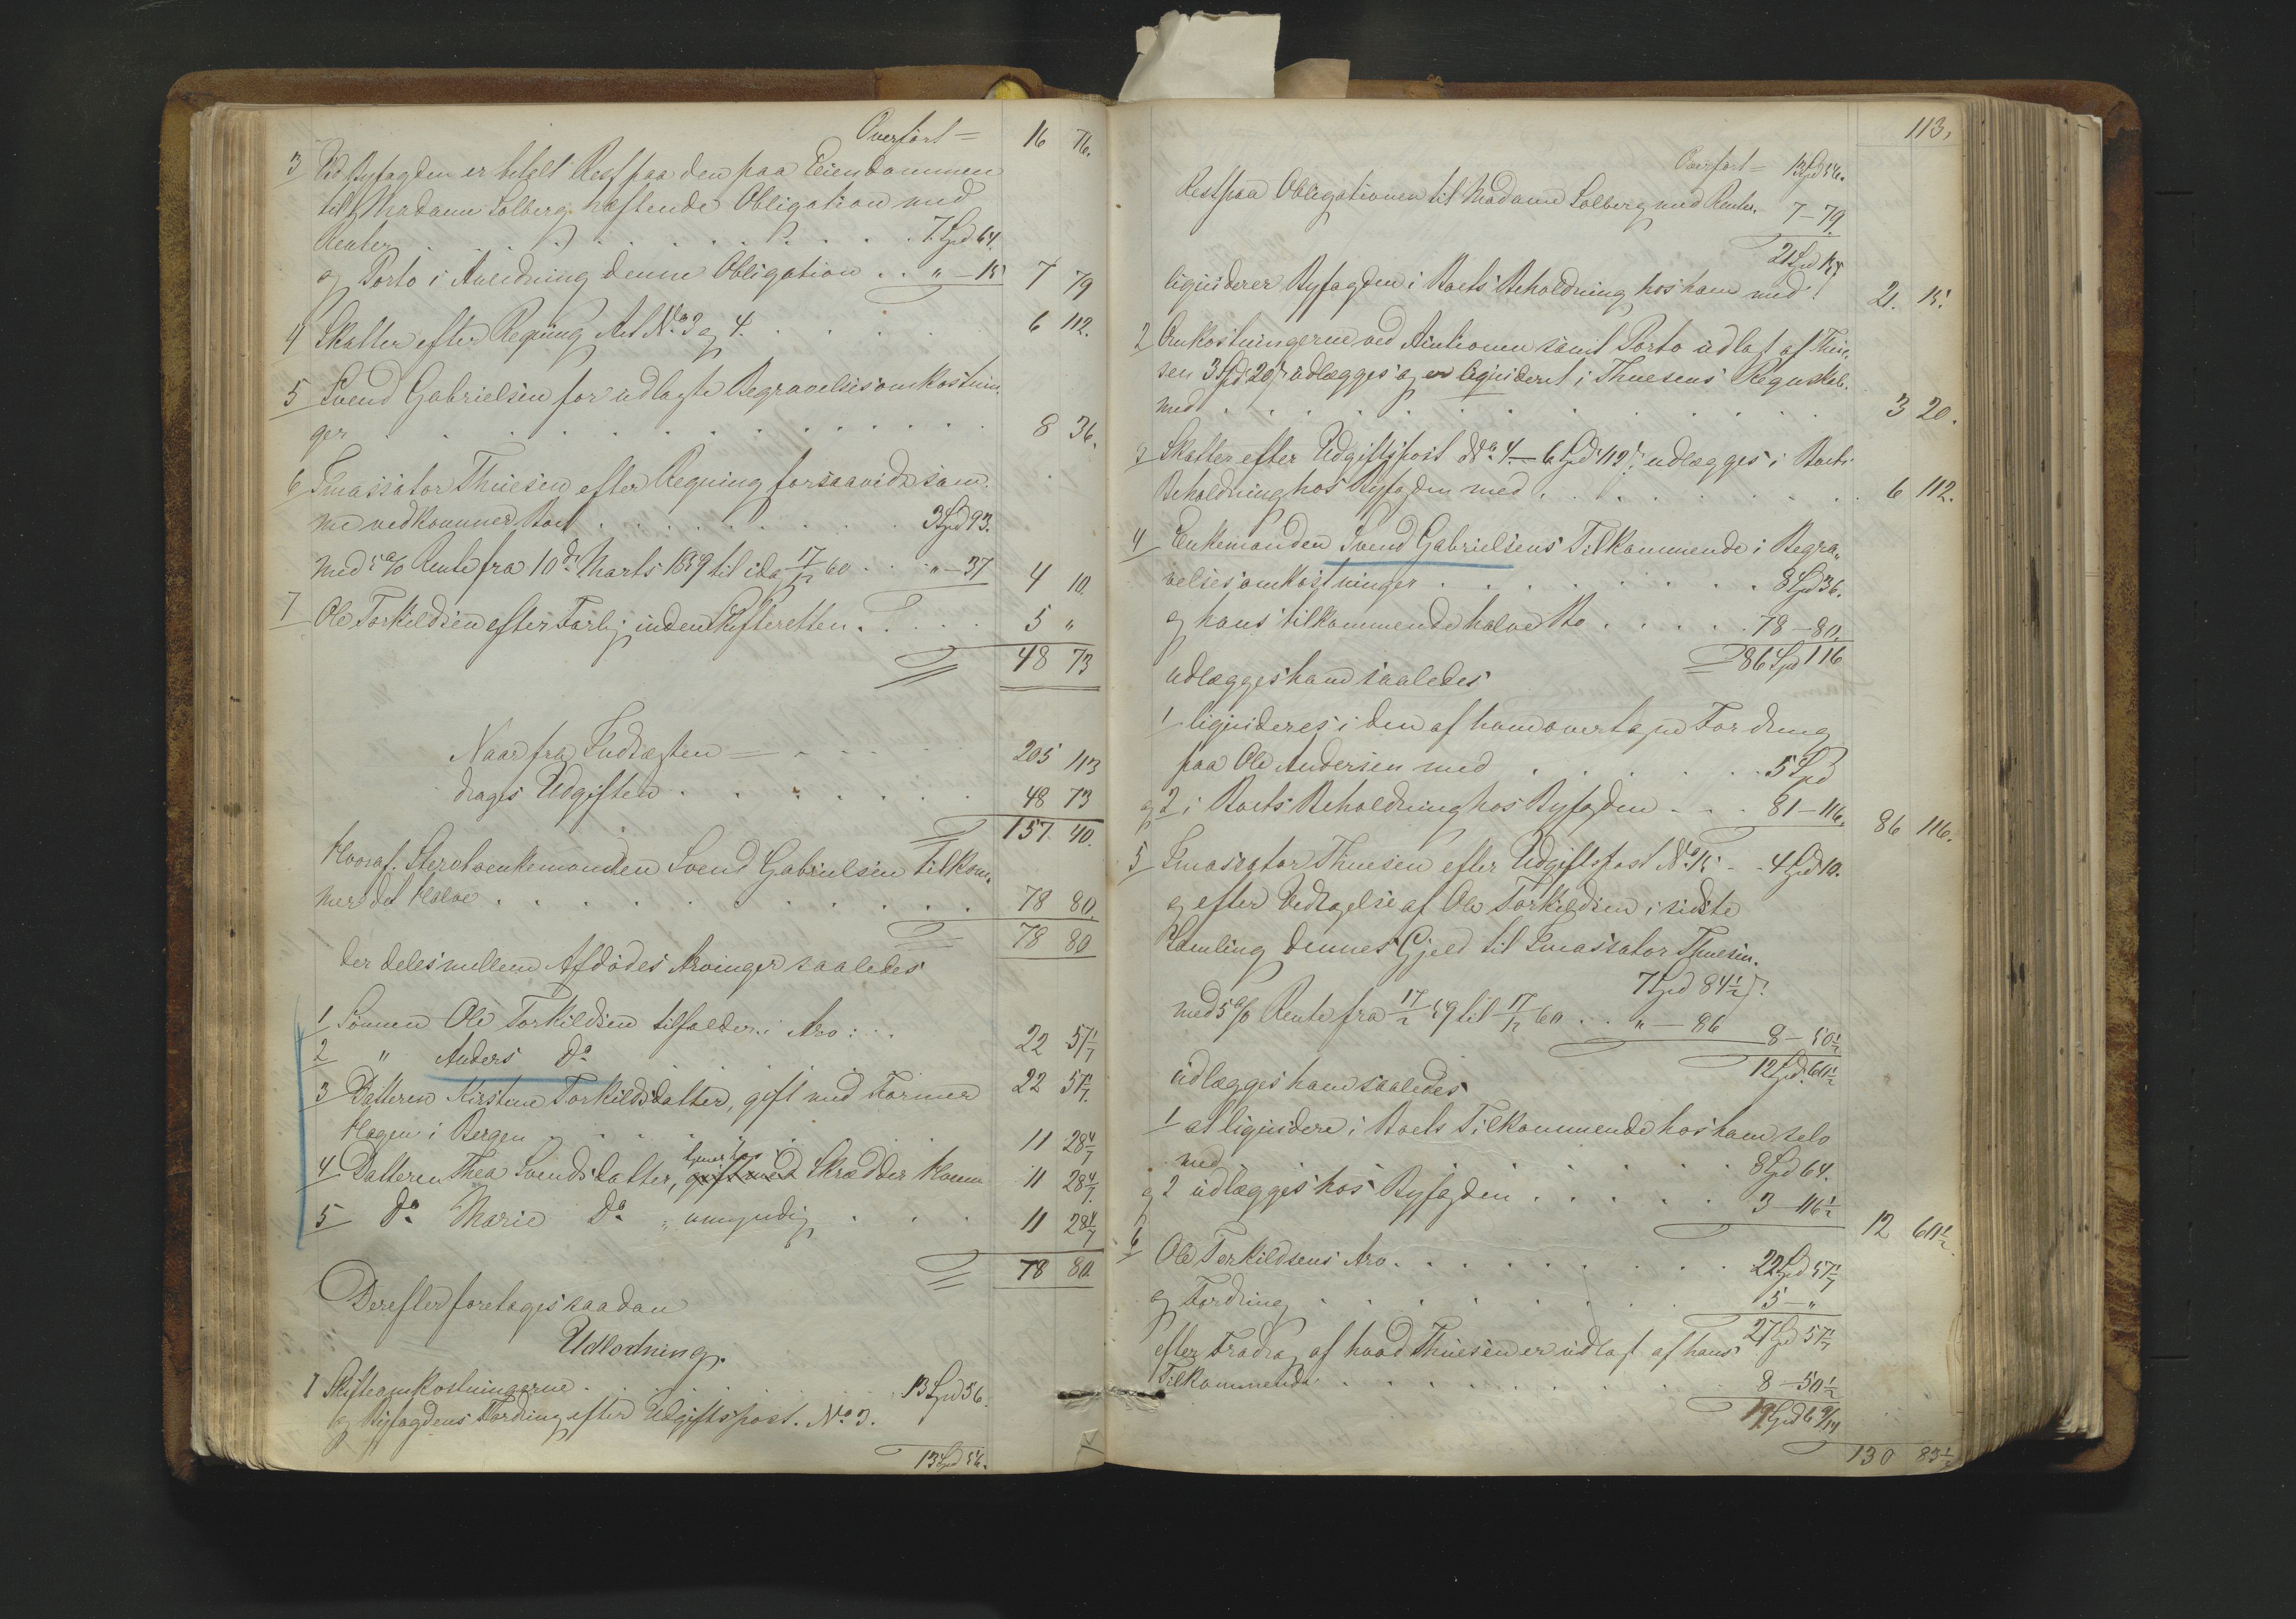 Overført = 16 76.
3 Ved Byfogden er betalt Rest paa den paa Eiendommen
til Madame Solberg heftende Obligation med
Renter . . . . . . . . . . 7 Spd 64.
og Porto i Anledning denne Obligation . . " – 15 7 79
4 Skatter efter Regning Art No 3 og 4. . . . . 6 112.
5 Svend Gabrielsen for udlagte Begravelsesomkostnin-
ger . . . . . . . . . . . . 8 36.
6 Incassator Thuesen efter Regning forsaavidt sam-
me vedkommer Boet . . . . . . . . 3 Spd 93.
med 5 % Rente fra 10de Marts 1859 til idag 17/12 60 . . " – 37 4 10.
7 Ole Torkildsen efter Forlig inden Skifteretten . . . . . 5 "
48 73
Naar fra Indtægten = – – – 205 113
drages Udgiften . . . . . . . 48 73
157 40.
Hvoraf Stervboenkemanden Svend Gabrielsen tilkom-
mer det Halve . . . . . . . . . . 78 80.
78 80
der deles mellem Afdødes Arvinger saaledes
1 Sønnen Ole Torkildsen tilfalder i Arv : . . 22 57 1/7
2 " Anders Do 22 57 1/7.
3 Datteren Kirstine Torkildsdatter, gift med Former
Hagen i Bergen . . . . . . . 11 28 4/7
4 Datteren Thea Svendsdatter, tjener hos gift med Skrædder 11 28 4/7.
5 do Marie Do " umyndig . . . 11 28 4/7
78 80.
Derefter foretages saadan
Udlodning.
1 Skifteomkostningerne . . . . . . . 13 Spd 56.
og Byfogdens Fordring efter Udgiftspost. No 3.
13 Spd 56.
113.
Overført = 13 Spd 56.
Rest paa Obligationen til Madame Solberg med Renter. 7 – 79.
21 Spd 15
liqviderer Byfogden i Boets Beholdning hos ham med 21. 15.
2 Omkostningerne ved Auctionen samt Porto udlagt af Thue-
sen 3 Spd 20 udlægges og er liqvideret i Thuesens Regnskab.
med . . . . . . . . . . . 3 20.
3 Skatter efter Udgiftspost No 4. – 6 Spd 112 udlægges i Boets
Beholdning hos Byfogden med . . . . . . . . 6 112.
4 Enkemanden Svend Gabrielsens Tilkommende i Begra-
velsesomkostninger . . . . . . . 8 Spd 36.
og hans tilkommende halve Bo . . . . . 78 – 80.
86 Spd 116
udlægges ham saaledes
1 liqvideres i den af ham overtagne Fordring
paa Ole Andersen med . . . . . . 5 Spd
og 2 i Boets Beholdning hos Byfogden . . . 81 – 116. 86 116.
5 Incassator Thuesen efter Udgiftspost No – 4 Spd 10.
og efter Vedtagelse af Ole Torkildsen i sidste
Samling dennes Gjeld til Incassator Thuesen.
7 Spd 84 1/2
med 5 % Rente fra 59 til 17/12 60 . . " – 86 8 – 50 1/2
12 Spd. 60 1/2
udlægges ham saaledes
1 at liqvidere i Boets Tilkommende hos ham selv
med . . . . . . . . 8 Spd 64.
og 2 udlægges hos Byfogden . . . . . 3 – 116 1/2 12 60 1/2.
6 Ole Torkildsens Arv. . . . . . . . 22 Spd 57 1/7
og Fordring . . . . . . . 5 – "
27 Spd 57 1/7
efter Fradrag af hvad Thuesen er udlagt af hans
Tilkommende . . . . . . . . 8 – 50 1/2
19 Spd 6 9/14
130 83 1/2